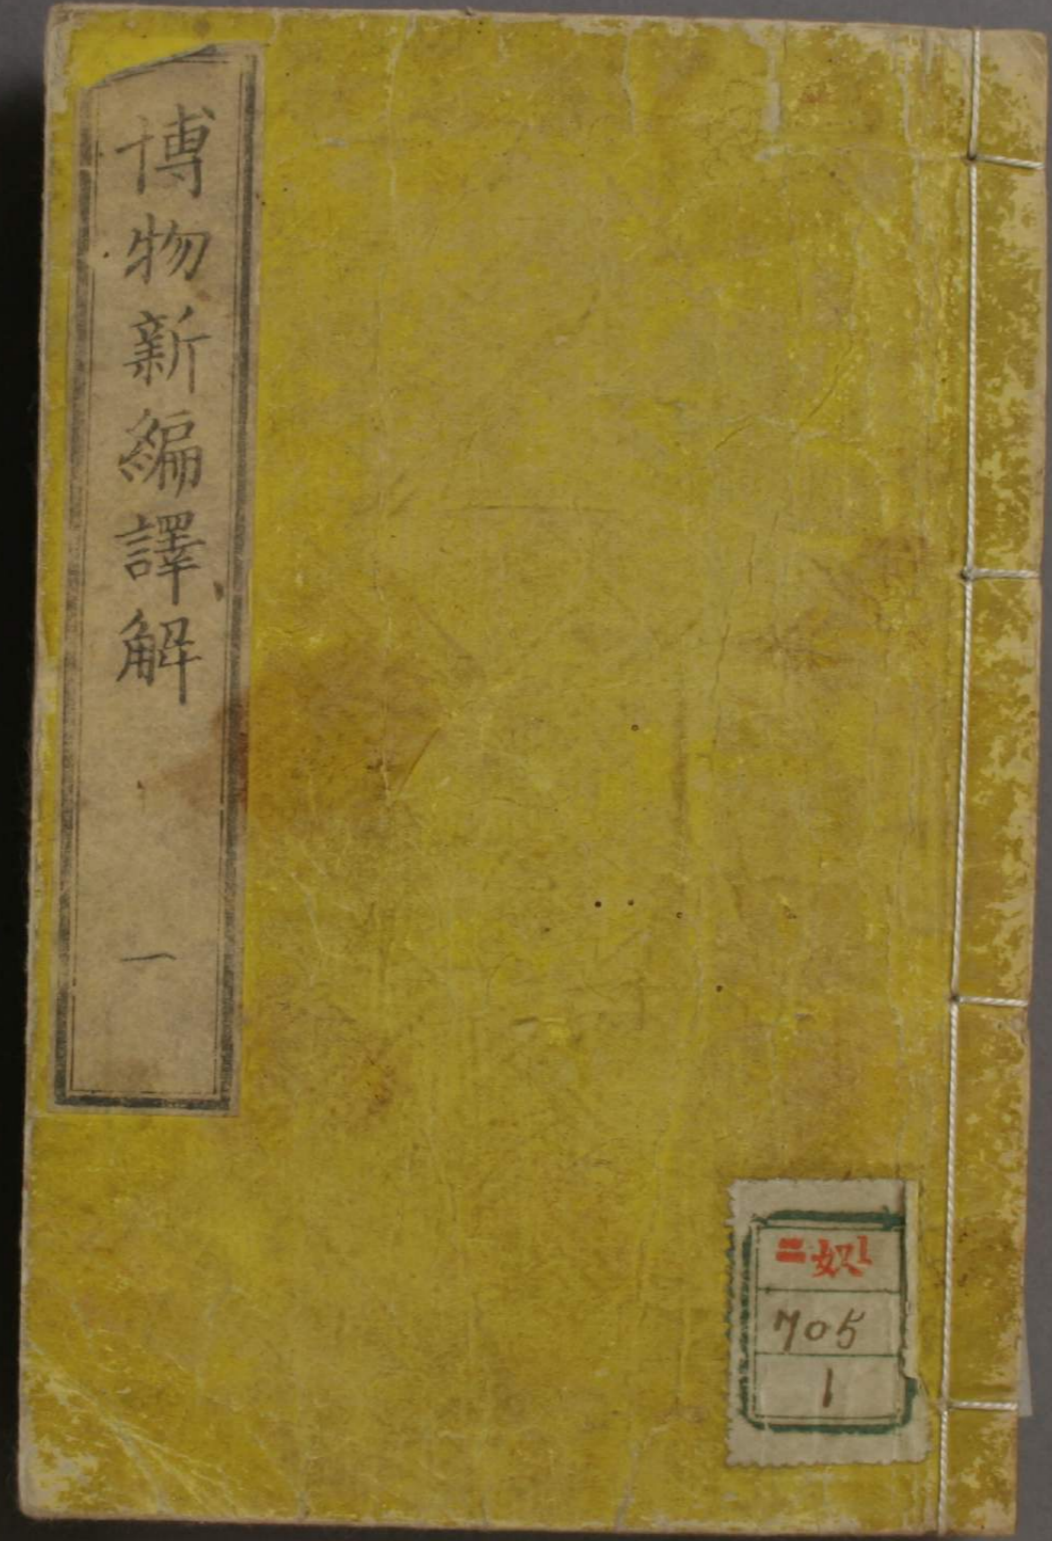 博物新編譯解
一
二奴1
705
1